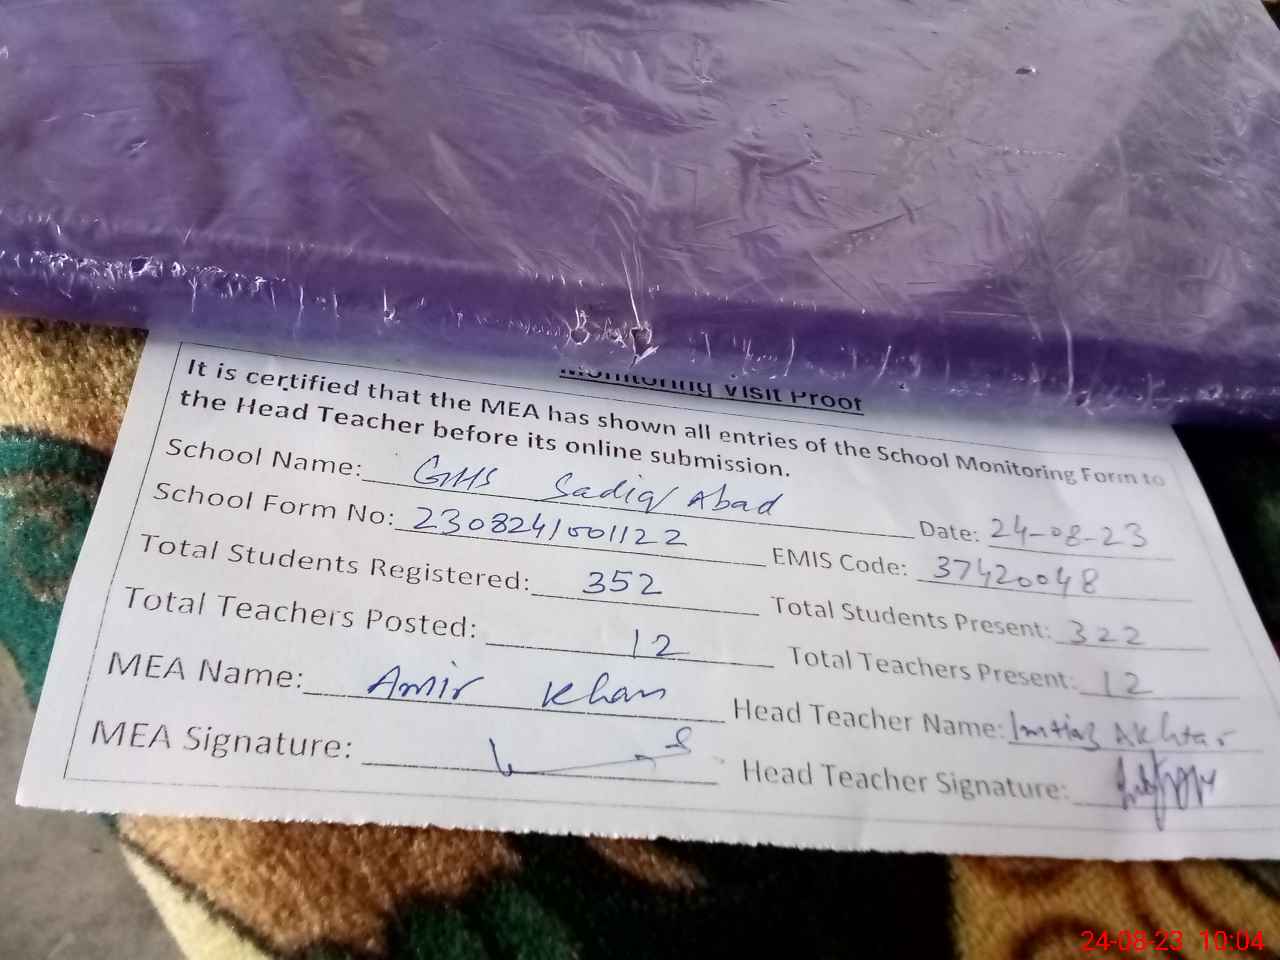 Monitoring Visit Proof
It is certified that the MEA has shown all entries of the School Monitoring Form to
the Head Teacher before its online submission.
School Name: GMS Sadiq Abad Date: 24-08-23
School Form No: 230824/001122 EMIS Code: 37420048
Total Students Registered: 352 Total Students Present: 322
Total Teachers Posted: 12 Total Teachers Present: 12
MEA Name: Amir Khan Head Teacher Name: Imtiaz Akhtar
MEA Signature: Head Teacher Signature:
24-08-23 10:04